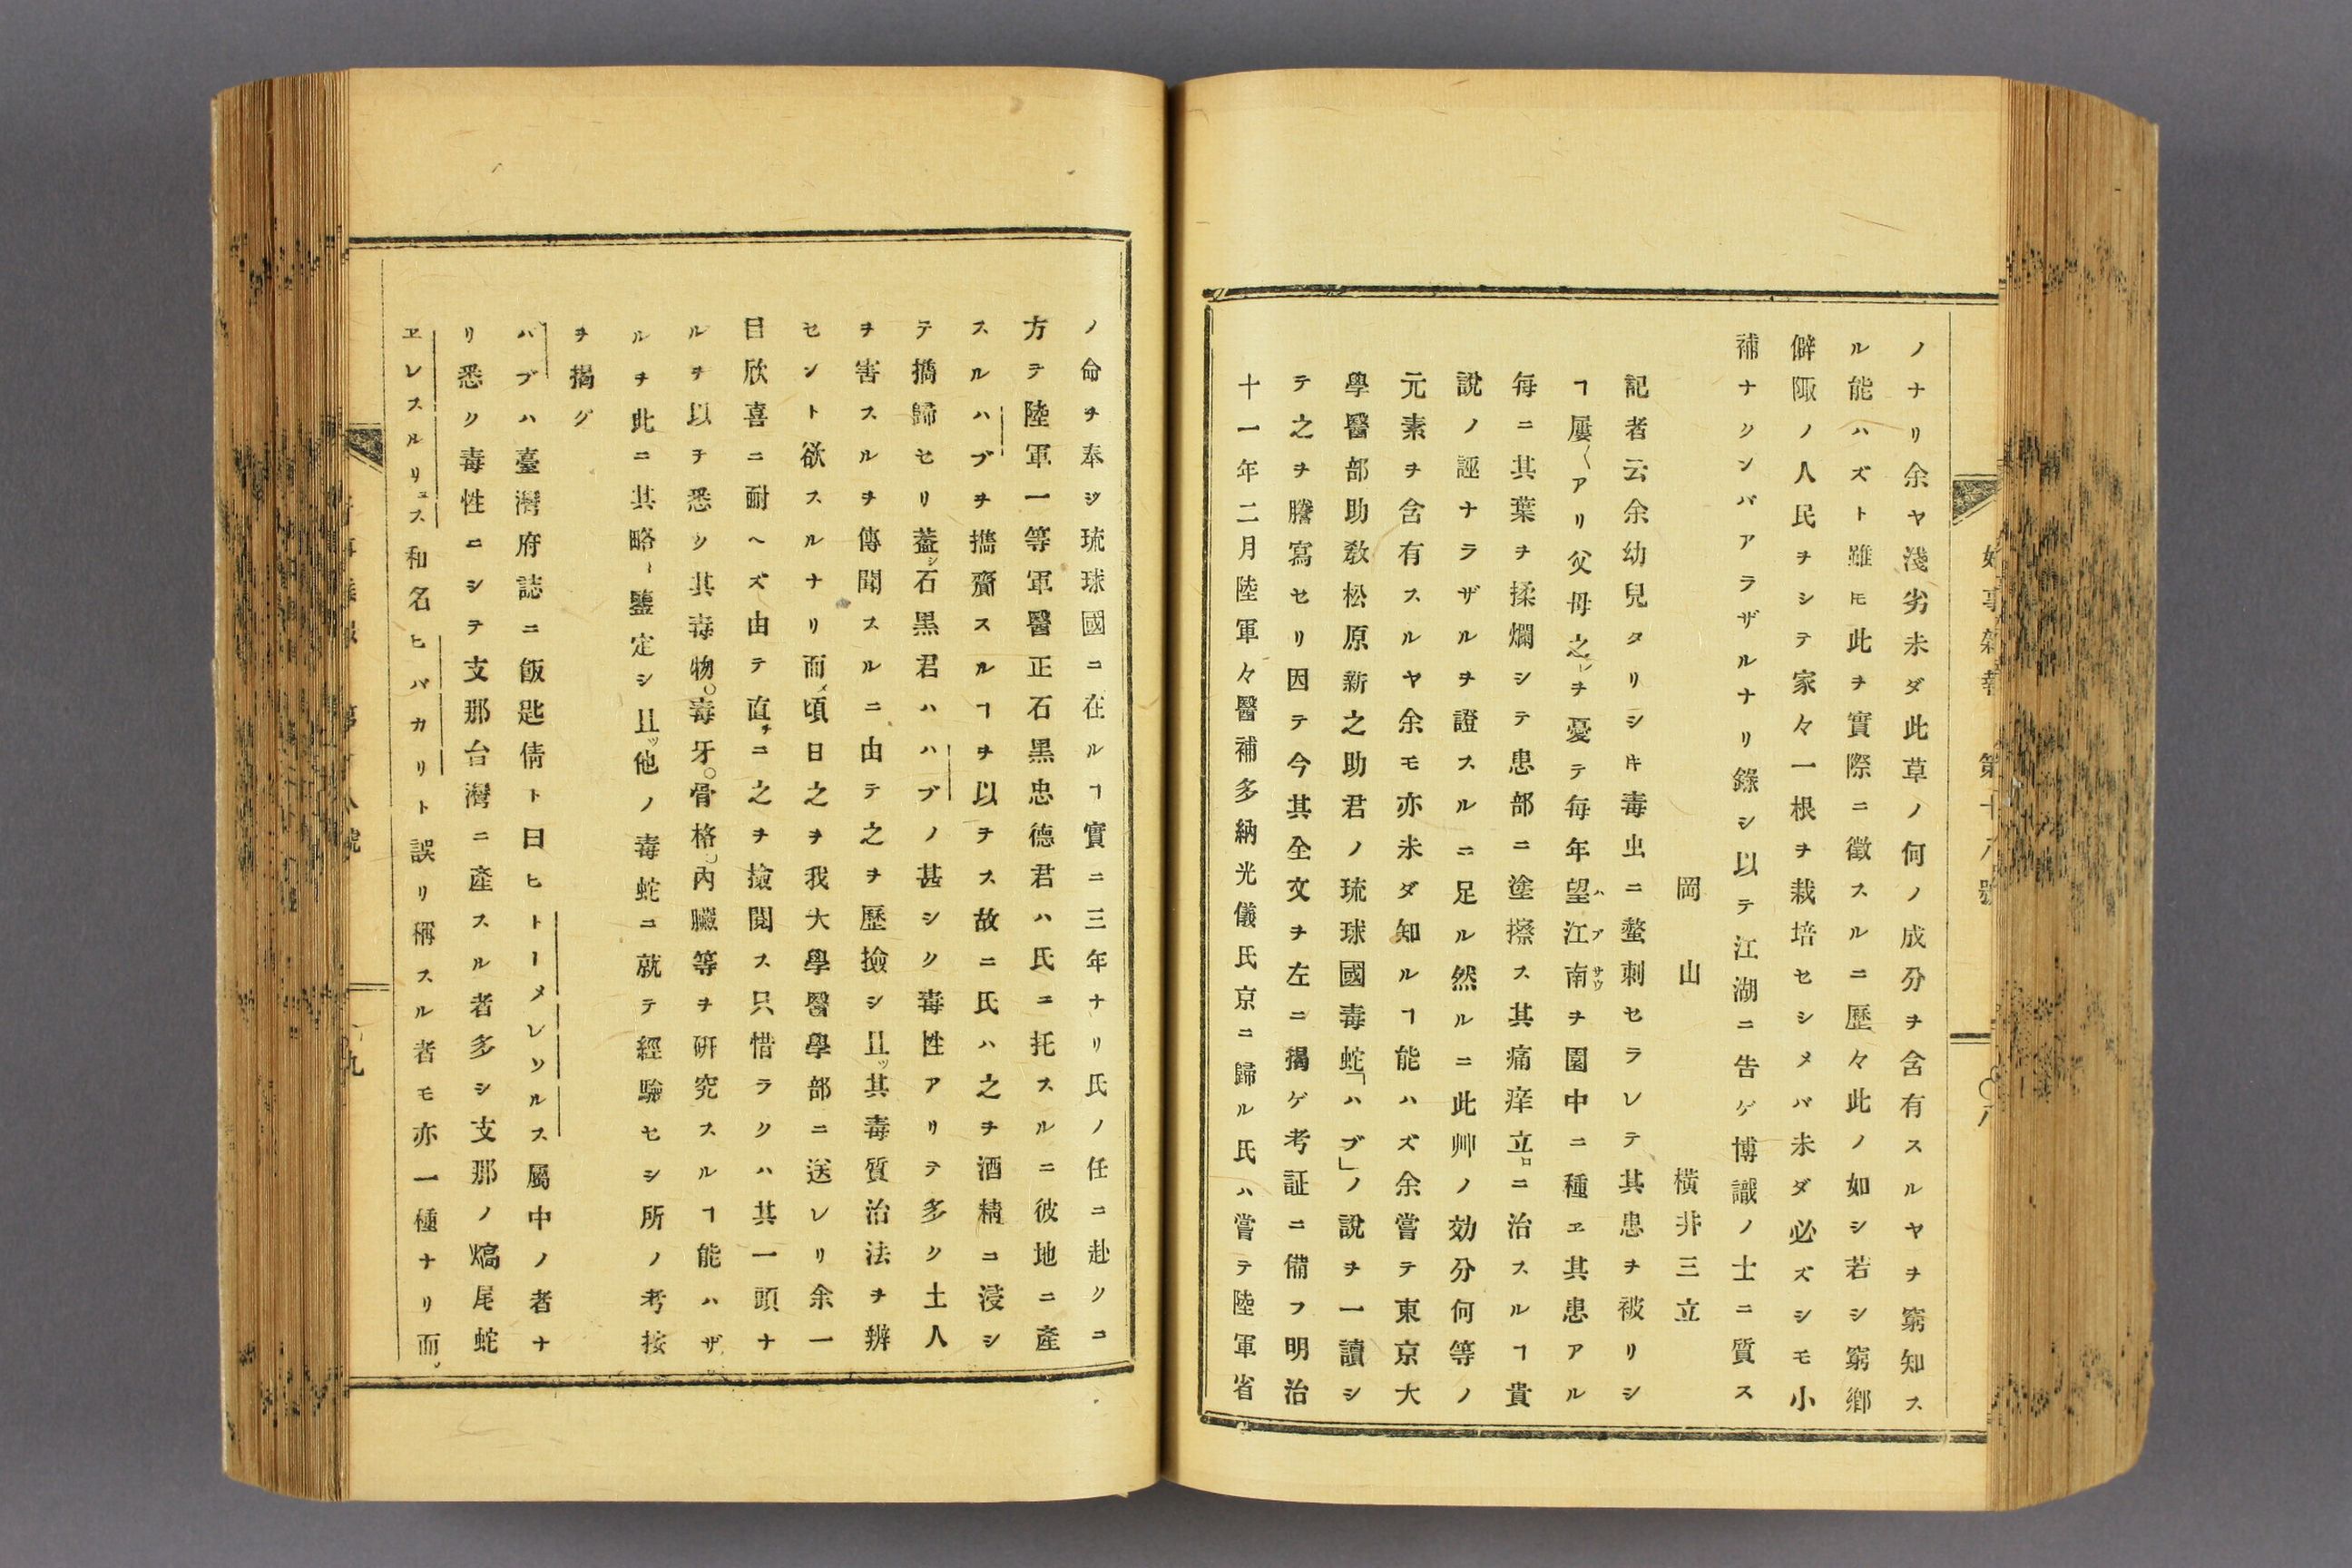 ノナリ余ヤ淺劣未ダ此草ノ何ノ成分ヲ含有スルヤヲ窮知ス
ル能ハズト雖𪜈此ヲ實際ニ徵スルニ歷々此ノ如シ若シ窮鄉
僻陬ノ人民ヲシテ家々一根ヲ栽培セシメバ未ダ必ズシモ小
補ナクンバアラザルナリ錄シ以テ江湖ニ告ゲ博識ノ士ニ質ス
岡山　橫井三立
記者云余幼兒タリシ𪜀毒虫ニ螫刺セラレテ其患ヲ被リシ
ヿ屢〱アリ父母之レヲ憂テ每年望江南ヲ園中ニ種ヱ其患アル
每ニ其葉ヲ揉爛シテ患部ニ塗擦ス其痛痒立ロニ治スルヿ貴
說ノ誣ナラザルヲ證スルニ足ル然ルニ此艸ノ効分何等ノ
元素ヲ含有スルヤ余モ亦未ダ知ルヿ能ハズ余嘗テ東京大
學醫部助敎松原新之助君ノ琉球國毒蛇「ハブ」ノ說ヲ一讀シ
テ之ヲ謄寫セリ因テ今其全文ヲ左ニ揭ゲ考証ニ備フ明治
十一年二月陸軍々醫補多納光儀氏京ニ歸ル氏ハ嘗テ陸軍省
ノ命ヲ奉シ琉球國ニ在ルヿ實ニ三年ナリ氏ノ任ニ赴クニ
方テ陸軍一等軍醫正石黑忠德君ハ氏ニ托スルニ彼地ニ產
スルハブヲ擕齎スルヿヲ以テス故ニ氏ハ之ヲ酒精ニ浸シ
テ擕歸セリ蓋シ石黑君ハハブノ甚シク毒性アリテ多ク土人
ヲ害スルヲ傳聞スルニ由テ之ヲ歷撿シ且ツ其毒質治法ヲ辨
セント欲スルナリ而〆頃日之ヲ我大學醫學部ニ送レリ余一
目欣喜ニ耐ヘズ由テ直チニ之ヲ撿閱ス只惜ラクハ其一頭ナ
ルヲ以テ悉ク其毒物。毒牙。骨格。內臟等ヲ硏究スルヿ能ハザ
ルヲ此ニ其略ヽ鑒定シ且ツ他ノ毒蛇ニ就テ經驗セシ所ノ考按
ヲ揭グ
ハブハ臺灣府誌ニ飯匙倩ト曰ヒトーメレソルス屬中ノ者ナ
リ悉ク毒性ニシテ支那台灣ニ產スル者多シ支那ノ熇尾蛇
ヱレスルリュス和名ヒバカリト誤リ稱スル者モ亦一種ナリ而〆